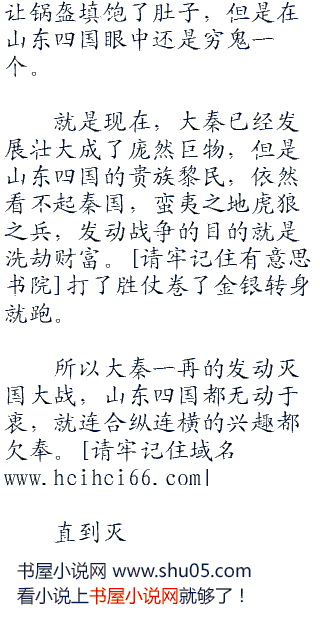 让锅盔填饱了肚子，但是在
山东四国眼中还是穷鬼一
个。
就是现在，大秦已经发
展壮大成了庞然巨物，但是
山东四国的贵族黎民，依然
看不起秦国，蛮夷之地虎狼
之兵，发动战争的目的就是
洗劫财富。[请牢记住有意思
书院]打了胜仗卷了金银转身
就跑。
所以大秦一再的发动灭
国大战，山东四国都无动于
衷，就连合纵连横的兴趣都
欠奉。[请牢记住域名
www.hcihci66.com|
直到灭
书屋小说网 www.shu05.com
看小说上书屋小说网就够了！